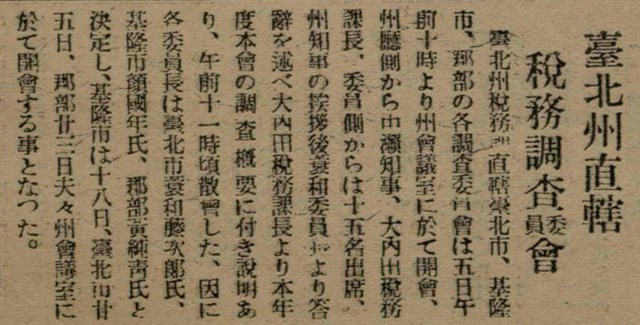 臺北州直轄
稅務調查委員會
臺北州稅務直轄臺北市、基隆
市、郡部の各調査委員會は五日午
前十時より州會議室に於て開會、
州廳側から中瀬知事、大內田稅務
課長、委員側からは十五名出席、
州知事の挨拶後蓑和委員より答
辭を述べ大內田稅務課長より本年
度本會の調査槪要に付き說明あ
り、午前十一時頃散會した、因に
各委員長は臺北市蓑和藤次郞氏、
基隆市顏國年氏、郡部黃純靑氏と
決定し、基隆市は十八日、臺北市廿
五日、郡部廿三日夫々州會議室に
於て開會する事となつた。